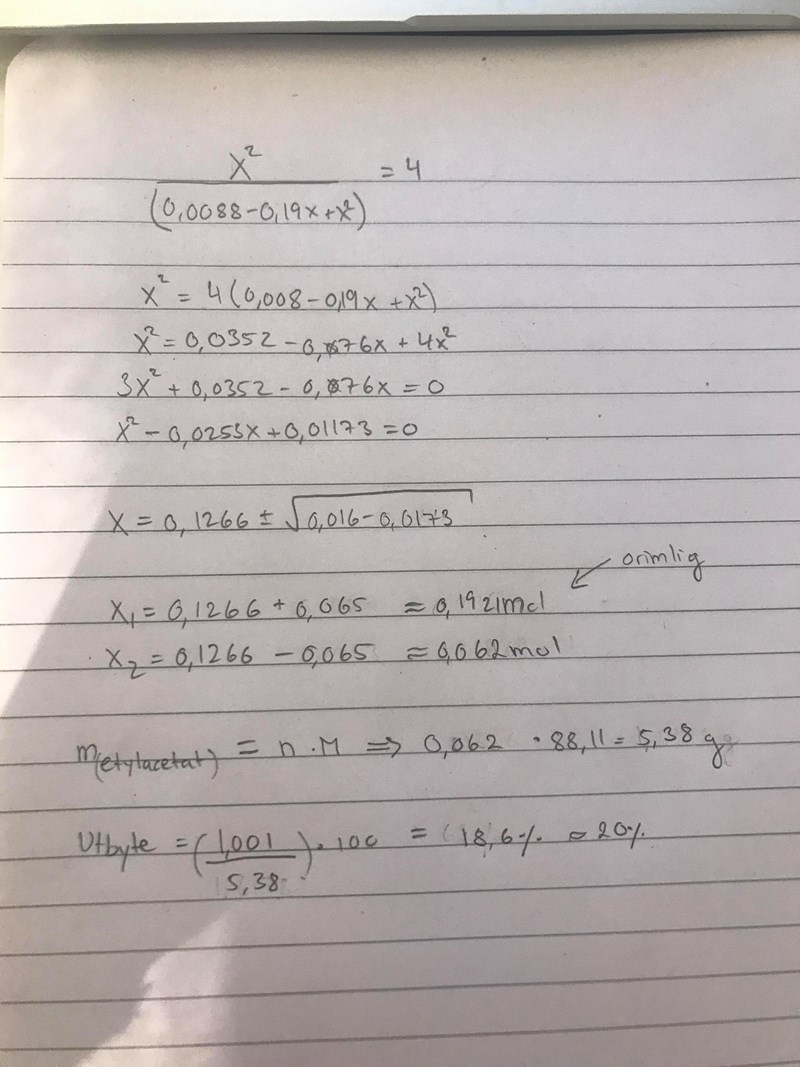 x²
(0,0088-0,19x+x²) = 4
x² = 4(0,008-0,19x+x²)
x² = 0,0352 - 0,76x + 4x²
3x² + 0,0352 - 0,76x = 0
x² - 0,0253x + 0,01173 = 0
x = 0,1266 ± √0,016-0,0173
orimlig
x₁ = 0,1266 + 0,065 ≈ 0,1921mol
x₂ = 0,1266 - 0,065 ≈ 0,062mol
m(etylacetat) = n·M => 0,062 · 88,11 = 5,38 g
Utbyte = (1,001/5,38) · 100 = 18,6% ≈ 20%